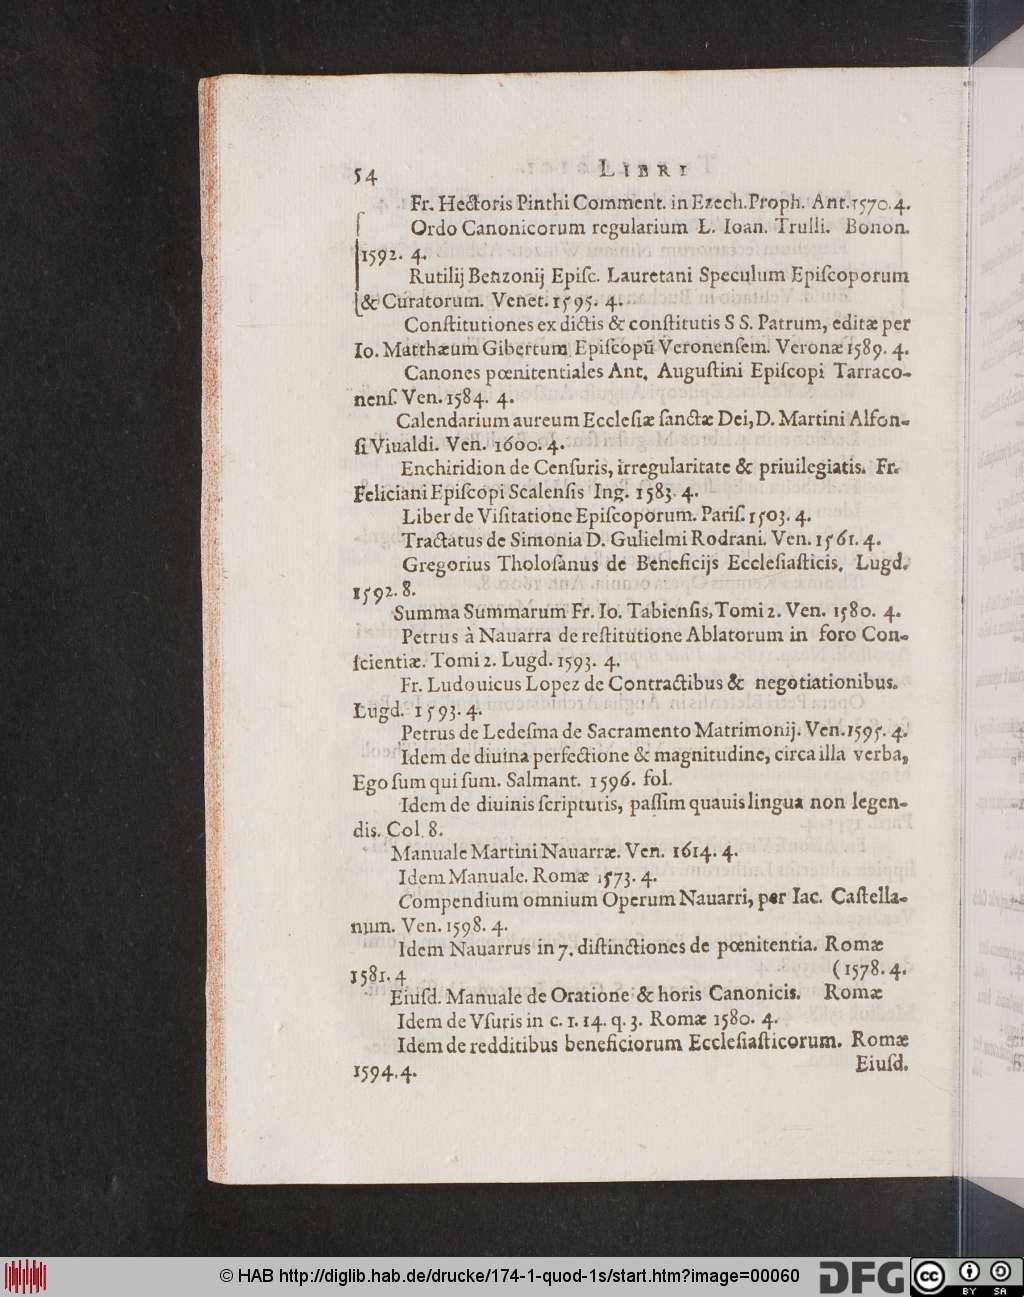 54 LIBRI
Fr. Hectoris Pinthi Comment. in Ezech. Proph. Ant. 1570. 4.
Ordo Canonicorum regularium L. Ioan. Trulli. Bonon.
1592. 4.
Rutilij Benzonij Epiſc. Lauretani Speculum Epiſcoporum
& Curatorum. Venet. 1595. 4.
Conſtitutiones ex dictis & conſtitutis S S. Patrum, editæ per
Io. Matthæum Gibertum Epiſcopū Veronenſem. Veronæ 1589. 4.
Canones pœnitentiales Ant. Auguſtini Epiſcopi Tarraco-
nenſ. Ven. 1584. 4.
Calendarium aureum Eccleſiæ ſanctæ Dei, D. Martini Alfon-
ſi Viualdi. Ven. 1600. 4.
Enchiridion de Cenſuris, irregularitate & priuilegiatis. Fr.
Feliciani Epiſcopi Scalenſis Ing. 1583. 4.
Liber de Viſitatione Epiſcoporum. Pariſ. 1503. 4.
Tractatus de Simonia D. Gulielmi Rodrani. Ven. 1561. 4.
Gregorius Tholoſanus de Beneficijs Eccleſiaſticis. Lugd.
1592. 8.
Summa Summarum Fr. Io. Tabienſis, Tomi 2. Ven. 1580. 4.
Petrus à Nauarra de reſtitutione Ablatorum in foro Con-
ſcientiæ. Tomi 2. Lugd. 1593. 4.
Fr. Ludouicus Lopez de Contractibus & negotiationibus.
Lugd. 1593. 4.
Petrus de Ledeſma de Sacramento Matrimonij. Ven. 1595. 4.
Idem de diuina perfectione & magnitudine, circa illa verba,
Ego ſum qui ſum. Salmant. 1596. fol.
Idem de diuinis ſcripturis, paſſim quauis lingua non legen-
dis. Col. 8.
Manuale Martini Nauarræ. Ven. 1614. 4.
Idem Manuale. Romæ 1573. 4.
Compendium omnium Operum Nauarri, per Iac. Caſtella-
num. Ven. 1598. 4.
Idem Nauarrus in 7. diſtinctiones de pœnitentia. Romæ
1581. 4 (1578. 4.
Eiuſd. Manuale de Oratione & horis Canonicis. Romæ
Idem de Vſuris in c. 1. 14. q. 3. Romæ 1580. 4.
Idem de redditibus beneficiorum Eccleſiaſticorum. Romæ
1594. 4. Eiuſd.
© HAB http://diglib.hab.de/drucke/174-1-quod-1s/start.htm?image=00060
DFG
cc BY SA